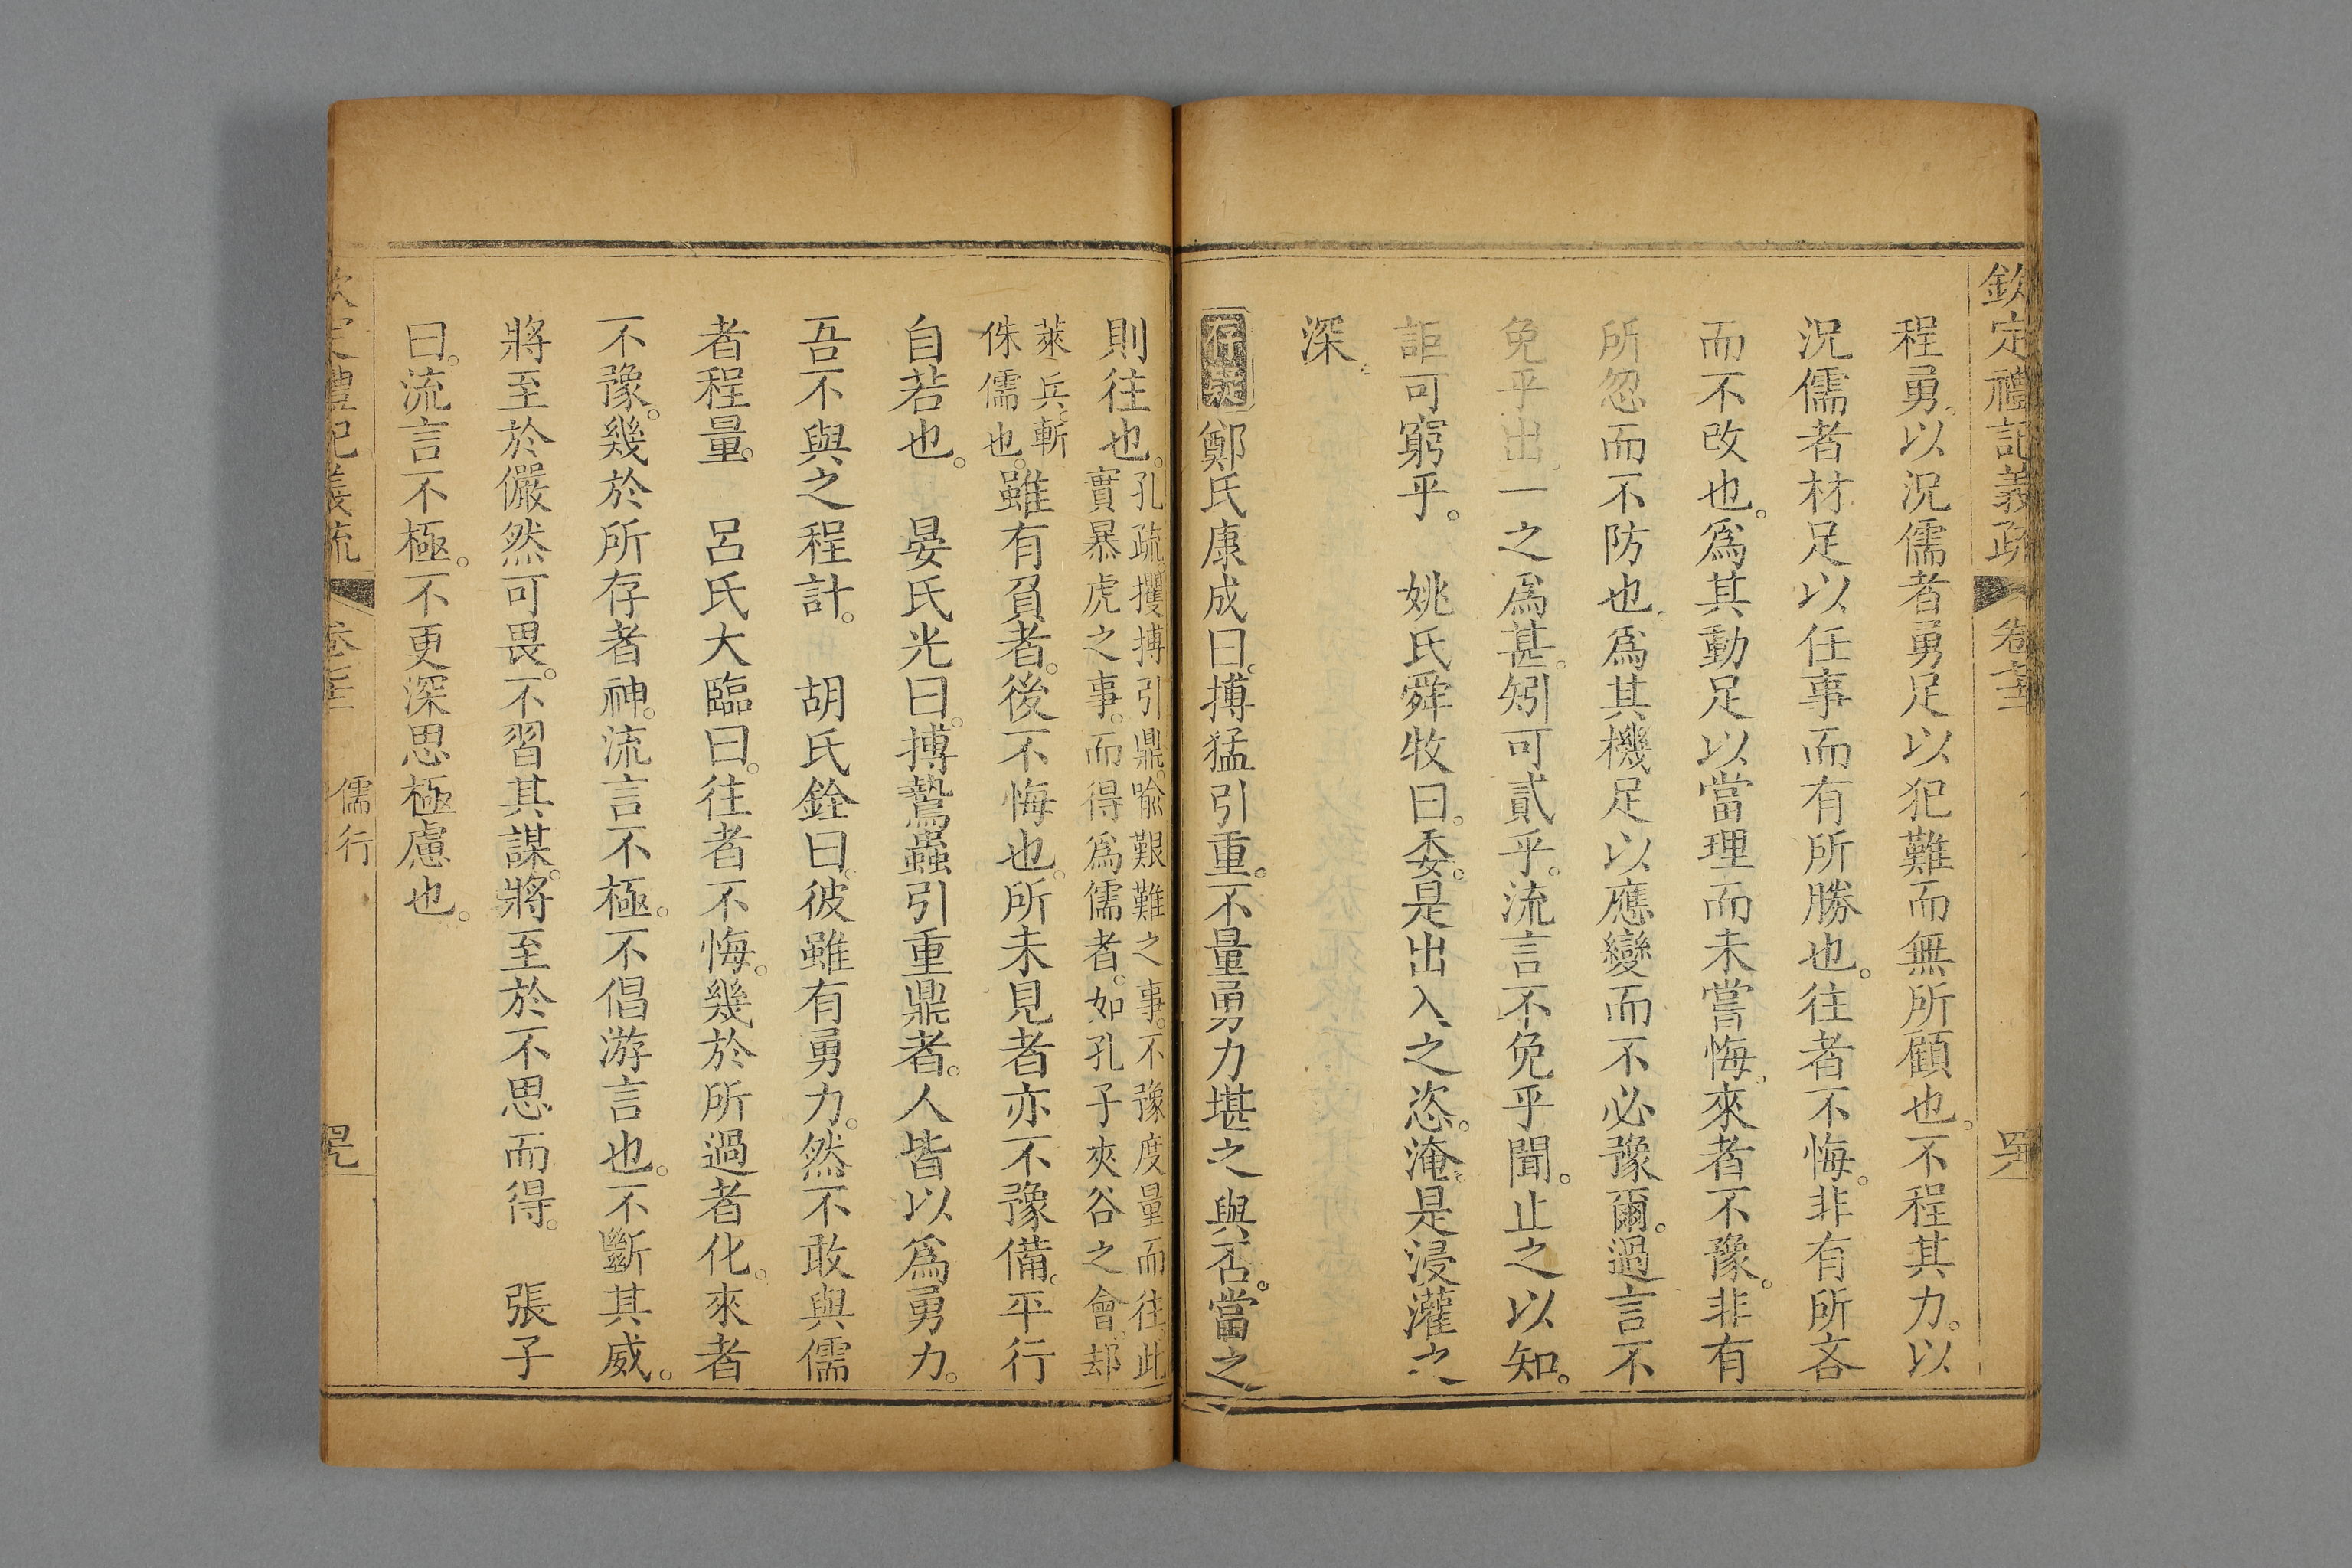 欽定禮記義疏
程勇。以況儒者勇足以犯難而無所顧也。不程其力。以
況儒者材足以任事而有所勝也。往者不悔。非有所吝
而不改也。爲其動足以當理而未嘗悔。來者不豫。非有
所忽而不防也。爲其機足以應變而不必豫爾。過言不
免乎出。一之爲甚。矧可貳乎。流言不免乎聞。止之以知。
詎可窮乎。 姚氏舜牧曰。委。是出入之恣。淹。是浸灌之
深。
存疑 鄭氏康成曰。搏猛引重。不量勇力堪之與否。當之
則往也。孔疏。攫搏引鼎。喻艱難之事。不豫度量而往。此
實暴虎之事。而得爲儒者。如孔子夾谷之會。却
萊兵。斬
侏儒也。雖有負者。後不悔也。所未見者亦不豫備。平行
自若也。 晏氏光曰。搏鷙蟲引重鼎者。人皆以爲勇力。
吾不與之程計。 胡氏銓曰。彼雖有勇力。然不敢與儒
者程量。 呂氏大臨曰。往者不悔。幾於所過者化。來者
不豫。幾於所存者神。流言不極。不倡游言也。不斷其威。
將至於儼然可畏。不習其謀。將至於不思而得。 張子
曰。流言不極。不更深思極慮也。
儒行